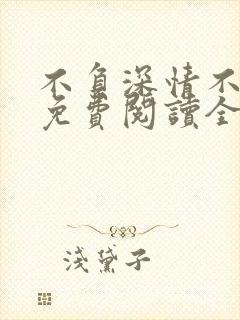 不負深情不
免費閱讀全
淺黛子